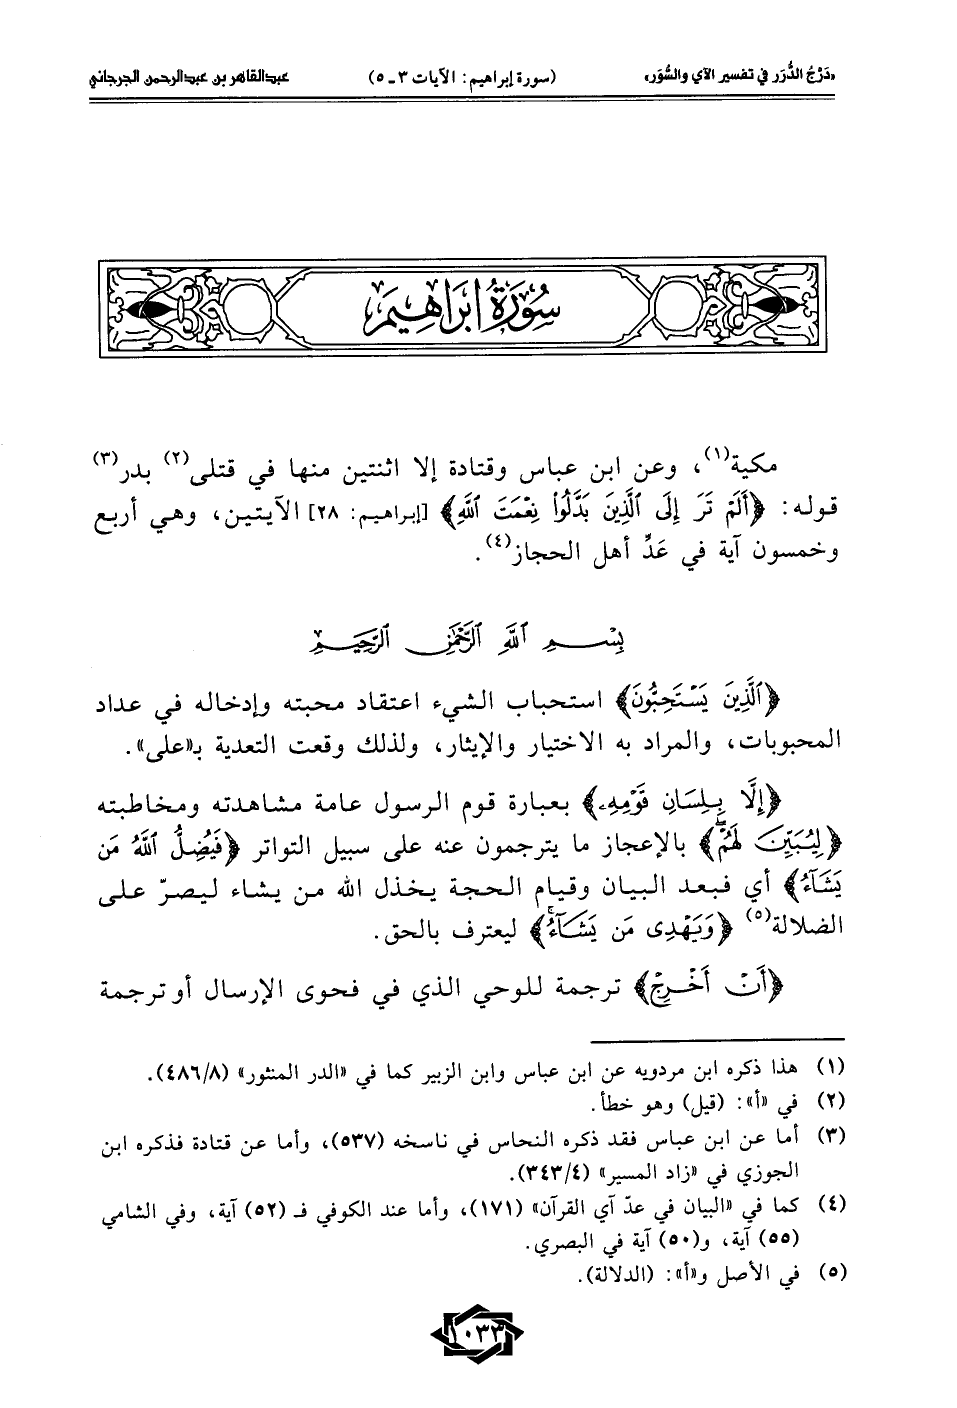 «دَرْجُ الدُّرَر في تفسير الآي والسُّوَر» (سورة إبراهيم: الآيات ٣ ـ ٥) عبدالقاهر بن عبدالرحمن الجرجاني
سُورَةُ إبْرَاهِيمَ
مكية(١)، وعن ابن عباس وقتادة إلا اثنتين منها في قتلى(٢) بدر(٣)
قوله: ﴿أَلَمْ تَرَ إِلَى ٱلَّذِينَ بَدَّلُواْ نِعْمَتَ ٱللَّهِ﴾ [إبراهيم: ٢٨] الآيتين، وهي أربع
وخمسون آية في عَدِّ أهل الحجاز(٤).
بِسْمِ ٱللَّهِ ٱلرَّحْمَٰنِ ٱلرَّحِيمِ
﴿ٱلَّذِينَ يَسْتَحِبُّونَ﴾ استحباب الشيء اعتقاد محبته وإدخاله في عداد
المحبوبات، والمراد به الاختيار والإيثار، ولذلك وقعت التعدية بـ«على».
﴿إِلَّا بِلِسَانِ قَوْمِهِۦ﴾ بعبارة قوم الرسول عامة مشاهدته ومخاطبته
﴿لِيُبَيِّنَ لَهُمْۖ﴾ بالإعجاز ما يترجمون عنه على سبيل التواتر ﴿فَيُضِلُّ ٱللَّهُ مَن
يَشَآءُ﴾ أي فبعد البيان وقيام الحجة يخذل الله من يشاء ليصرّ على
الضلالة(٥) ﴿وَيَهْدِى مَن يَشَآءُۚ﴾ ليعترف بالحق.
﴿أَنْ أَخْرِجْ﴾ ترجمة للوحي الذي في فحوى الإرسال أو ترجمة
(١) هذا ذكره ابن مردويه عن ابن عباس وابن الزبير كما في «الدر المنثور» (٤٨٦/٨).
(٢) في «أ»: (قيل) وهو خطأ.
(٣) أما عن ابن عباس فقد ذكره النحاس في ناسخه (٥٣٧)، وأما عن قتادة فذكره ابن
الجوزي في «زاد المسير» (٣٤٣/٤).
(٤) كما في «البيان في عدّ آي القرآن» (١٧١)، وأما عند الكوفي فـ (٥٢) آية، وفي الشامي
(٥٥) آية، و(٥٠) آية في البصري.
(٥) في الأصل و«أ»: (الدلالة).
١٠٣٣